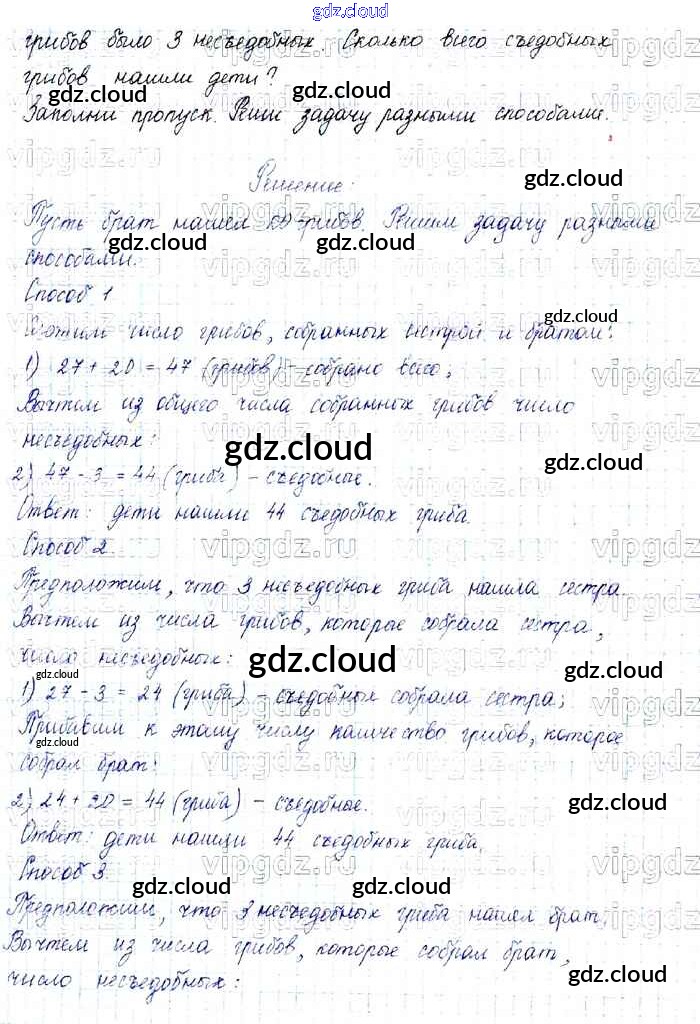 gdz.cloud
грибов было 3 несъедобных. Сколько всего съедобных
грибов нашли дети?
Заполни пропуск. Реши задачу разными способами.
Решение:
Пусть брат нашел 20 грибов. Решим задачу разными
способами.
Способ 1
Сложим число грибов, собранных сестрой и братом:
1) 27 + 20 = 47 (грибов) - собрано всего;
Вычтем из общего числа собранных грибов число
несъедобных:
2) 47 - 3 = 44 (гриба) - съедобные.
Ответ: дети нашли 44 съедобных гриба.
Способ 2.
Предположим, что 3 несъедобных гриба нашла сестра.
Вычтем из числа грибов, которые собрала сестра,
число несъедобных:
1) 27 - 3 = 24 (гриба) - съедобных собрала сестра;
Прибавим к этому числу количество грибов, которое
собрал брат:
2) 24 + 20 = 44 (гриба) - съедобные.
Ответ: дети нашли 44 съедобных гриба.
Способ 3.
Предположим, что 3 несъедобных гриба нашел брат.
Вычтем из числа грибов, которые собрал брат,
число несъедобных: